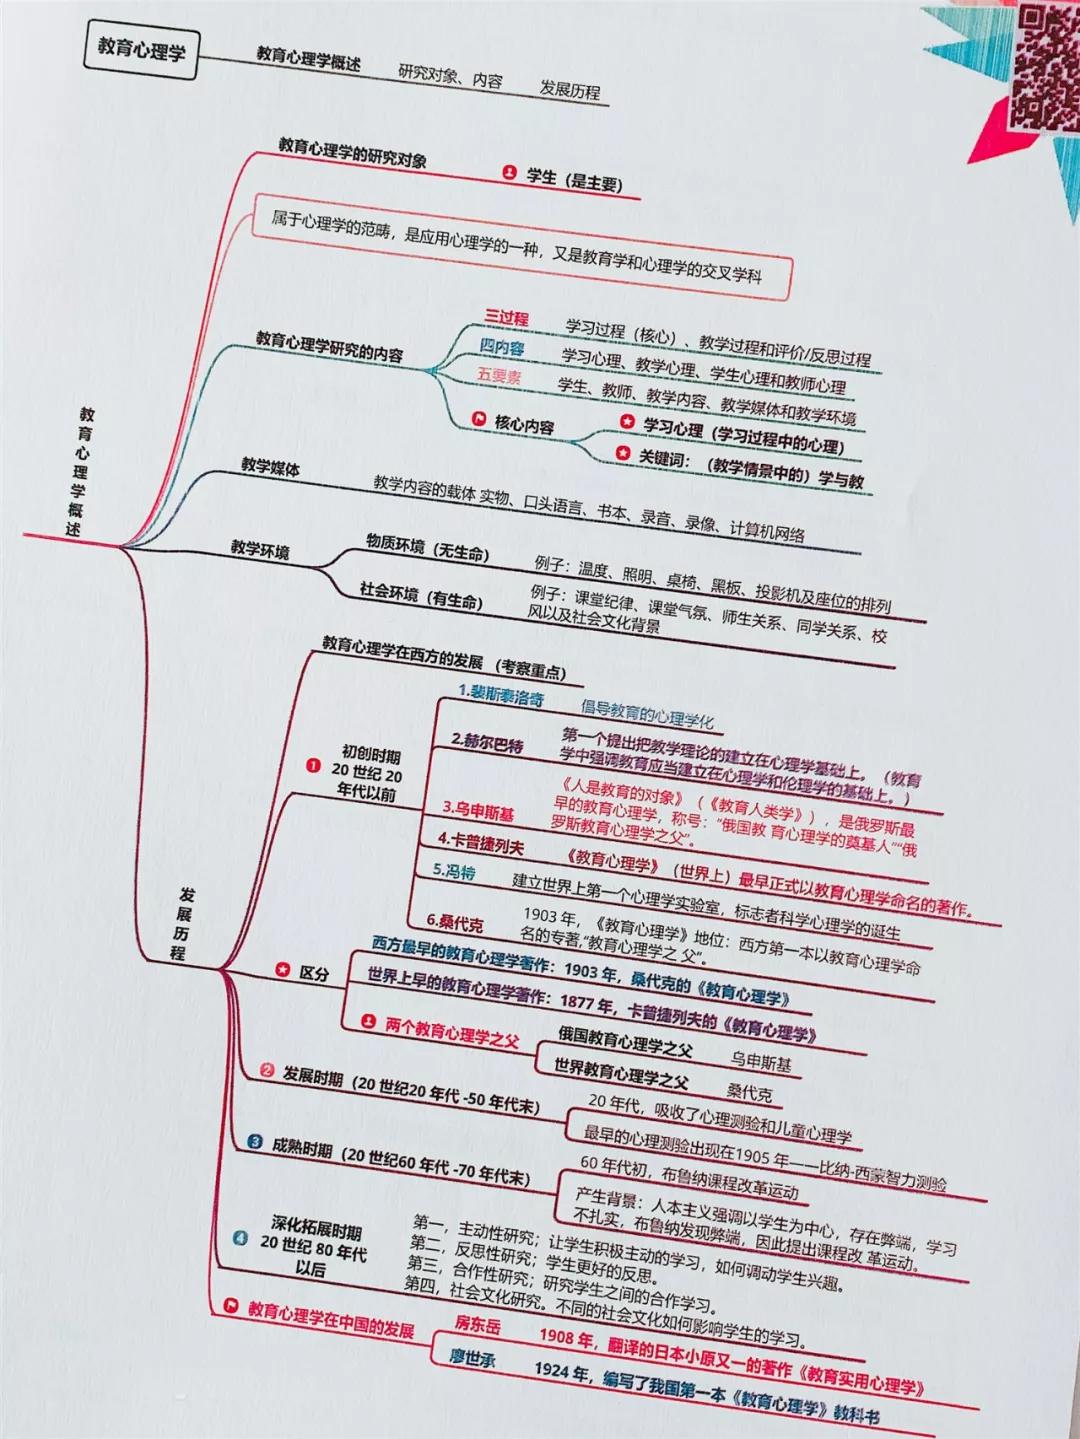 教育心理学
教育心理学概述 研究对象、内容 发展历程
教育心理学概述
教育心理学的研究对象 学生（是主要）
属于心理学的范畴，是应用心理学的一种，又是教育学和心理学的交叉学科
教育心理学研究的内容
三过程 学习过程（核心）、教学过程和评价/反思过程
四内容 学习心理、教学心理、学生心理和教师心理
五要素 学生、教师、教学内容、教学媒体和教学环境
核心内容
学习心理（学习过程中的心理）
关键词：（教学情景中的）学与教
教学媒体 教学内容的载体 实物、口头语言、书本、录音、录像、计算机网络
教学环境
物质环境（无生命） 例子：温度、照明、桌椅、黑板、投影机及座位的排列
社会环境（有生命） 例子：课堂纪律、课堂气氛、师生关系、同学关系、校
风以及社会文化背景
发展历程
教育心理学在西方的发展 （考察重点）
1 初创时期
20 世纪 20
年代以前
1.裴斯泰洛奇 倡导教育的心理学化
2.赫尔巴特 第一个提出把教学理论的建立在心理学基础上。（教育
学中强调教育应当建立在心理学和伦理学的基础上。）
3.乌申斯基 《人是教育的对象》（《教育人类学》），是俄罗斯最
早的教育心理学，称号：“俄国教 育心理学的奠基人”“俄
罗斯教育心理学之父”。
4.卡普捷列夫 《教育心理学》（世界上）最早正式以教育心理学命名的著作。
5.冯特 建立世界上第一个心理学实验室，标志者科学心理学的诞生
6.桑代克 1903 年，《教育心理学》地位：西方第一本以教育心理学命
名的专著,“教育心理学之 父”。
区分
西方最早的教育心理学著作：1903 年，桑代克的《教育心理学》
世界上早的教育心理学著作：1877 年，卡普捷列夫的《教育心理学》
两个教育心理学之父
俄国教育心理学之父 乌申斯基
世界教育心理学之父 桑代克
2 发展时期（20 世纪20 年代 -50 年代末）
20 年代，吸收了心理测验和儿童心理学
最早的心理测验出现在1905 年——比纳-西蒙智力测验
3 成熟时期（20 世纪60 年代 -70 年代末）
60 年代初，布鲁纳课程改革运动
产生背景：人本主义强调以学生为中心，存在弊端，学习
不扎实，布鲁纳发现弊端，因此提出课程改 革运动。
4 深化拓展时期
20 世纪 80 年代
以后
第一，主动性研究；让学生积极主动的学习，如何调动学生兴趣。
第二，反思性研究；学生更好的反思。
第三，合作性研究；研究学生之间的合作学习。
第四，社会文化研究。不同的社会文化如何影响学生的学习。
教育心理学在中国的发展
房东岳 1908 年，翻译的日本小原又一的著作《教育实用心理学》
廖世承 1924 年，编写了我国第一本《教育心理学》教科书